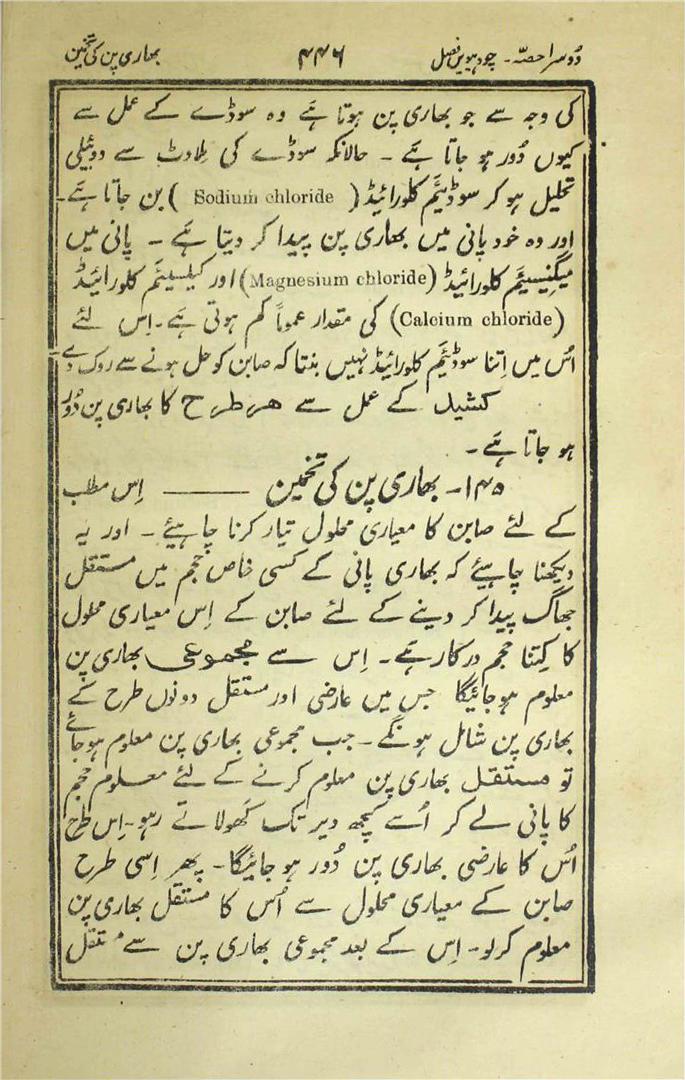 دُوسرا حصّہ۔ چودہویں فصل ۴۴۶ بھاری پن کی تخمین
کی وجہ سے جو بھاری پن ہوتا ہَے وہ سوڈے کے عمل سے
کیوں دُور ہو جاتا ہَے ۔ حالانکہ سوڈے کی ملاوٹ سے دوئیلی
تحلیل ہو کر سوڈیئم کلورائیڈ ( Sodium chloride ) بن جاتا ہَے۔
اور وہ خود پانی میں بھاری پن پیدا کر دیتا ہَے ۔ پانی میں
میگنیسیئم کلورائیڈ (Magnesium chloride) اور کیلسیئم کلورائیڈ
(Calcium chloride) کی مقدار عموماً کم ہوتی ہَے۔ اِس لئے
اُس میں اِتنا سوڈیئم کلورائیڈ نہیں بنتا کہ صابن کو حل ہونے سے روک دے
کشید کے عمل سے ہر طرح کا بھاری پن دُور
ہو جاتا ہَے ۔
۱۴۵۔ بھاری پن کی تخمین ——— اِس مطلب
کے لئے صابن کا معیاری محلول تیار کرنا چاہیئے ۔ اور یہ
دیکھنا چاہیئے کہ بھاری پانی کے کسی خاص حجم میں مستقل
جھاگ پیدا کر دینے کے لئے صابن کے اِس معیاری محلول
کا کِتنا حجم درکار ہَے۔ اِس سے مجموعی بھاری پن
معلوم ہو جائیگا جس میں عارضی اور مستقل دونوں طرح کے
بھاری پن شامل ہونگے ۔ جب مجموعی بھاری پن معلوم ہو جائے
تو مستقل بھاری پن معلوم کرنے کے لئے معلوم حجم
کا پانی لے کر اُسے کچھ دیر تک کھولاتے رہو۔ اِس طرح
اُس کا عارضی بھاری پن دُور ہو جائیگا۔ پھر اِسی طرح
صابن کے معیاری محلول سے اُس کا مستقل بھاری پن
معلوم کرلو۔ اِس کے بعد مجموعی بھاری پن سے مستقل